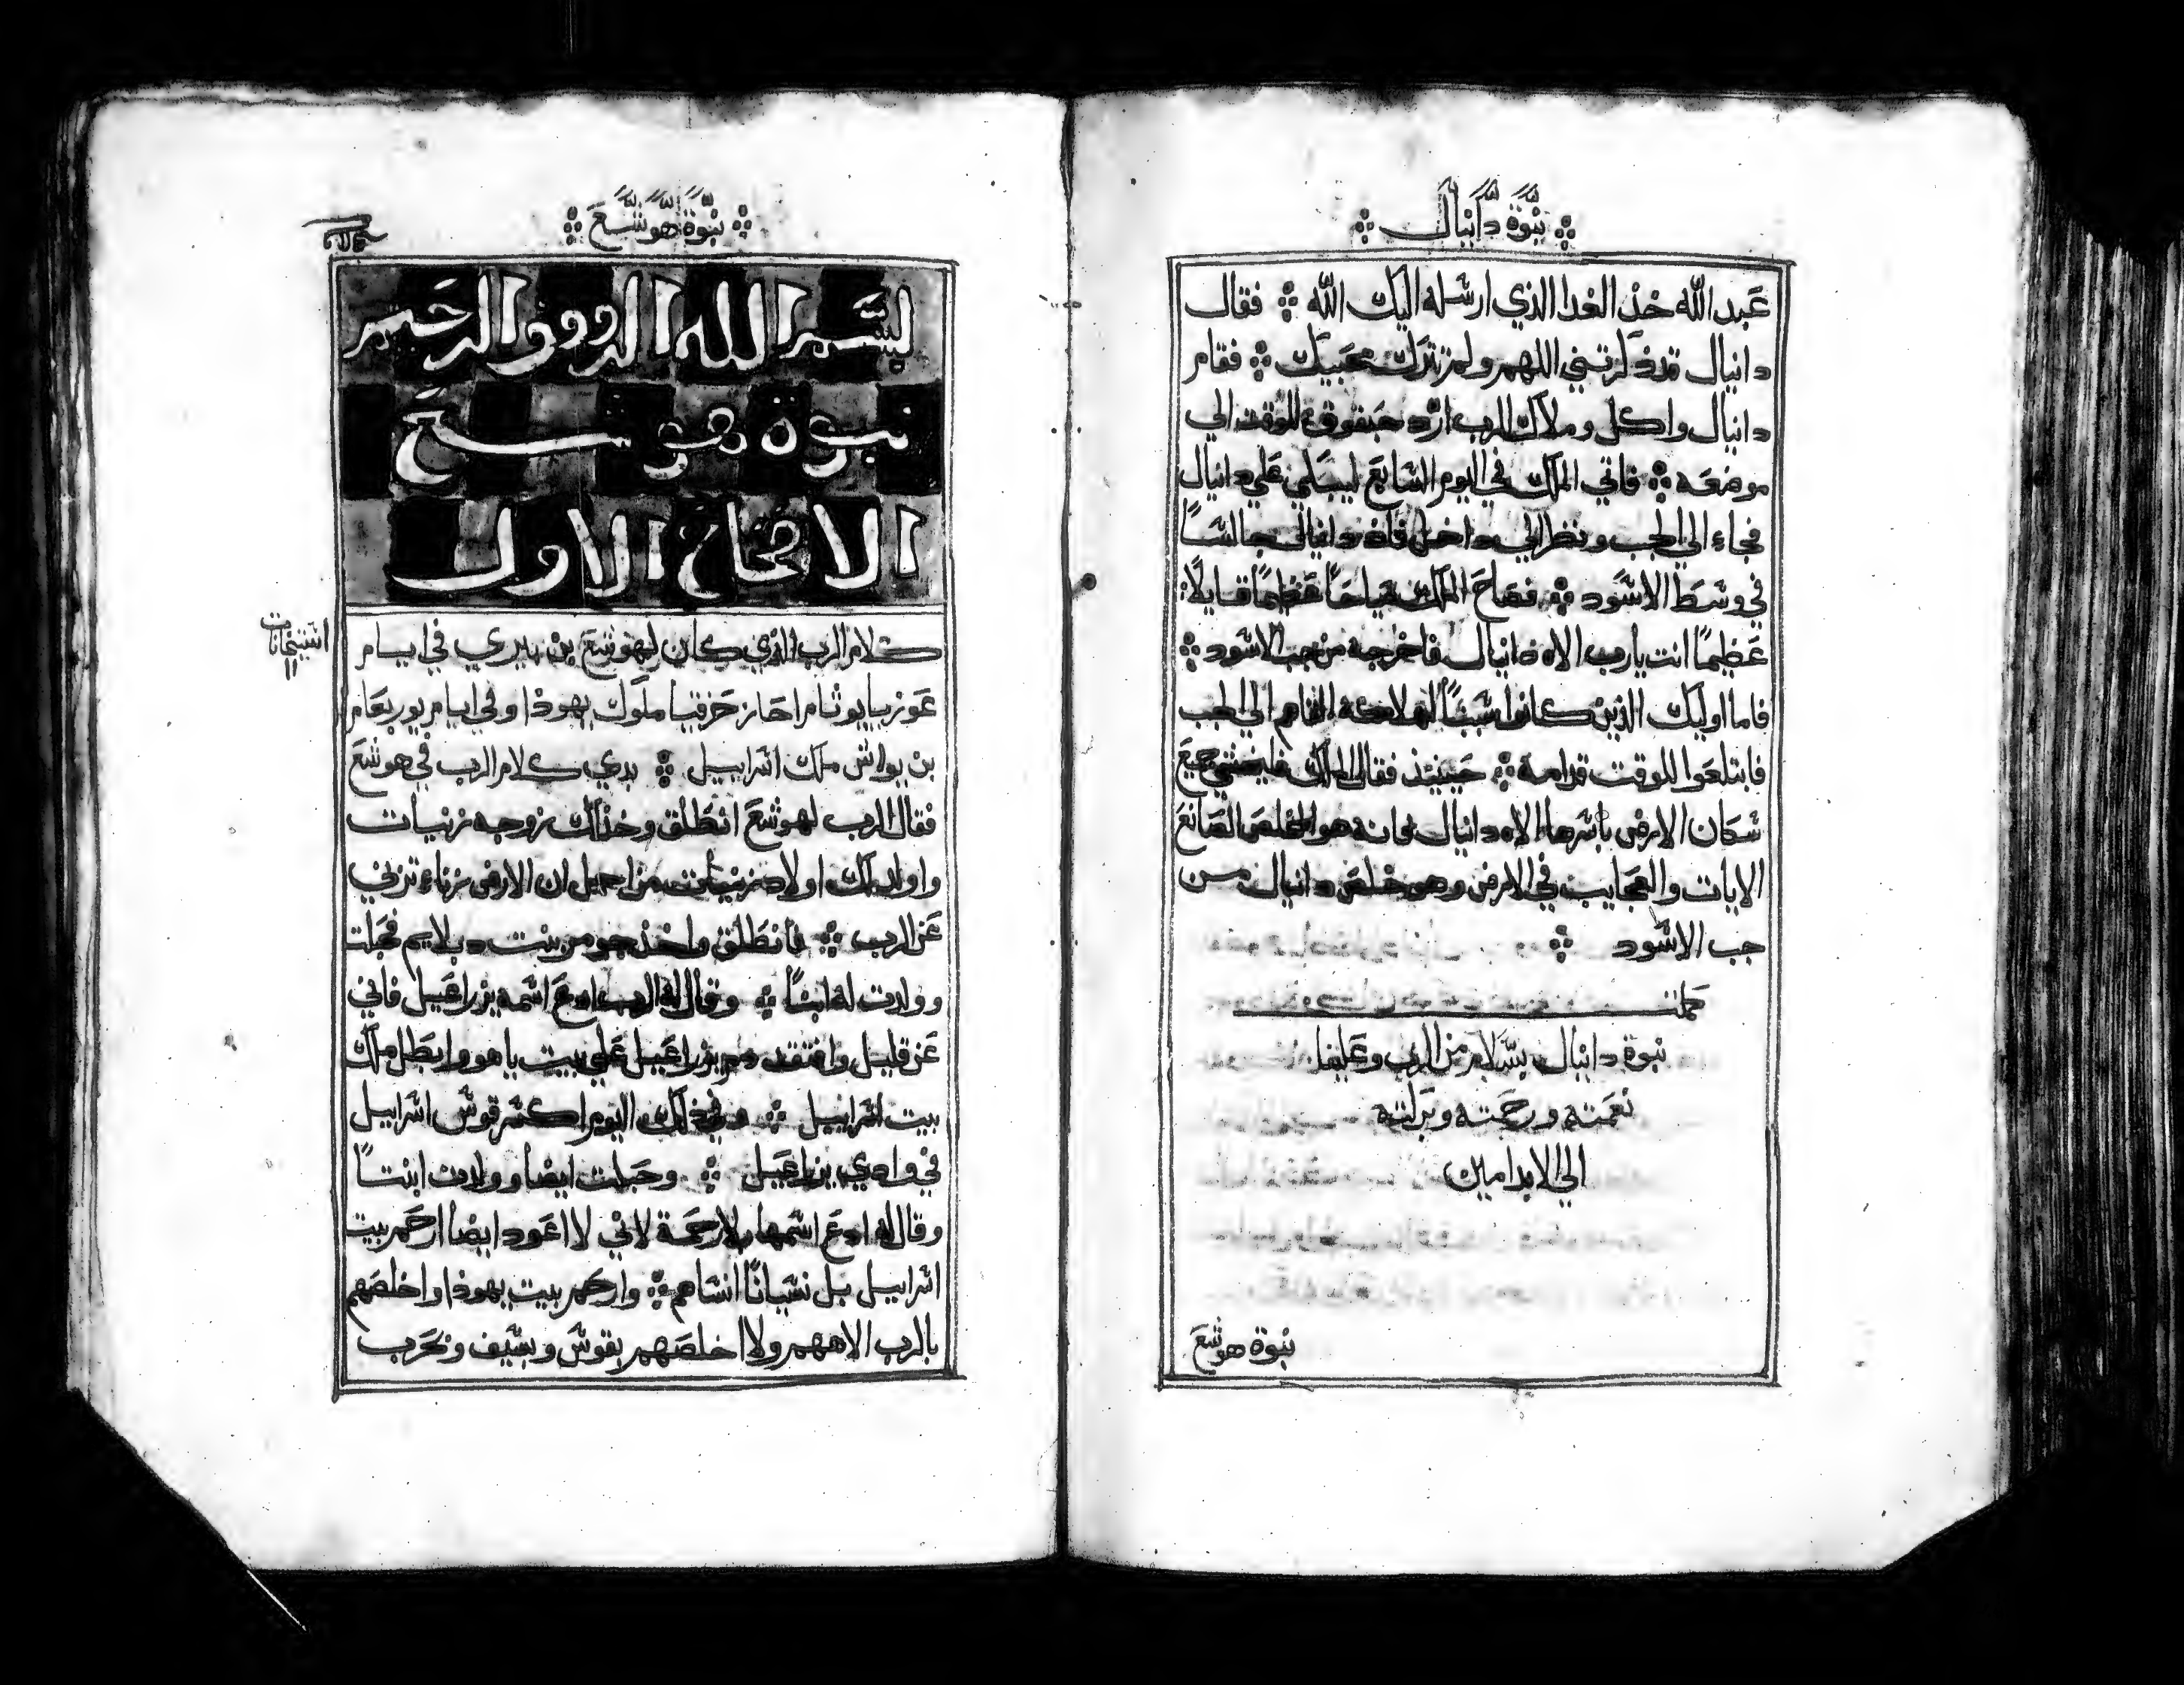 نبوة دانيال
عبد الله خذ الغدا الذي ارسله اليك الله ∴ فقال
دانيال قد ذكرتني اللهم ولم تترك محبيك ∴ فقام
دانيال واكل وملاك الرب ارد حبقوق للوقت الي
موضعه ∴ فاتي الملك في اليوم السابع ليبكي علي دانيال
فجاء الي الجب ونظر الي داخل فاذ دانيال جالسًا
في وسط الاسود ∴ فصاح الملك صياحًا عظيمًا قايلًا
عظيمًا انت يا رب الاه دانيال فاخرجه من جب الاسود ∴
فاما اوليك الذين كانوا سببًا لهلاكه القاهم الي الجب
فابتلعوا للوقت قدامه ∴ حينيذ فقال الملك فليخشي جميع
سكان الارض باسرها الاه دانيال لانه هو المخلص الصانع
الايات والعجايب في الارض وهو خلص دانيال من
جب الاسود ∴
كملت
نبوة دانيال بسلام من الرب وعلينا
نعمته ورحمته وبركته
الي الابد امين
نبوة هوشع
نبوة هوشع
بسم الله الروف الرحيم
نبوة هوشع
الاصحاح الاول
كلام الرب الذي كان لهوشع بن بيري في ايام
عوزيا يوثام احاز حزقيا ملوك يهوذا وفي ايام يوربعام
بن يواش ملك اسراييل ∴ بدي كلام الرب في هوشع
فقال الرب لهوشع انطلق وخذ لك زوجه زنيات
واولد لك اولاد زنيات من اجل ان الارض زناء تزني
عن الرب ∴ فانطلق واخذ جومر بنت دبلايم فحبلت
وولدت له ابنًا ∴ وقال له الرب ادع اسمه يزراعيل فاني
عن قليل وافتقد دم يزراعيل علي بيت ياهو وابطل ملك
بيت اسراييل ∴ وفي ذلك اليوم اكسر قوس اسراييل
في وادي يزراعيل ∴ وحبلت ايضا وولدت ابنتًا
وقال له ادع اسمها بلا رحمة لاني لا اعود ايضا ارحم بيت
اسراييل بل نسيانًا انساهم ∴ وارحم بيت يهوذا واخلصهم
بالرب الاههم ولا اخلصهم بقوس وبسيف وبحرب